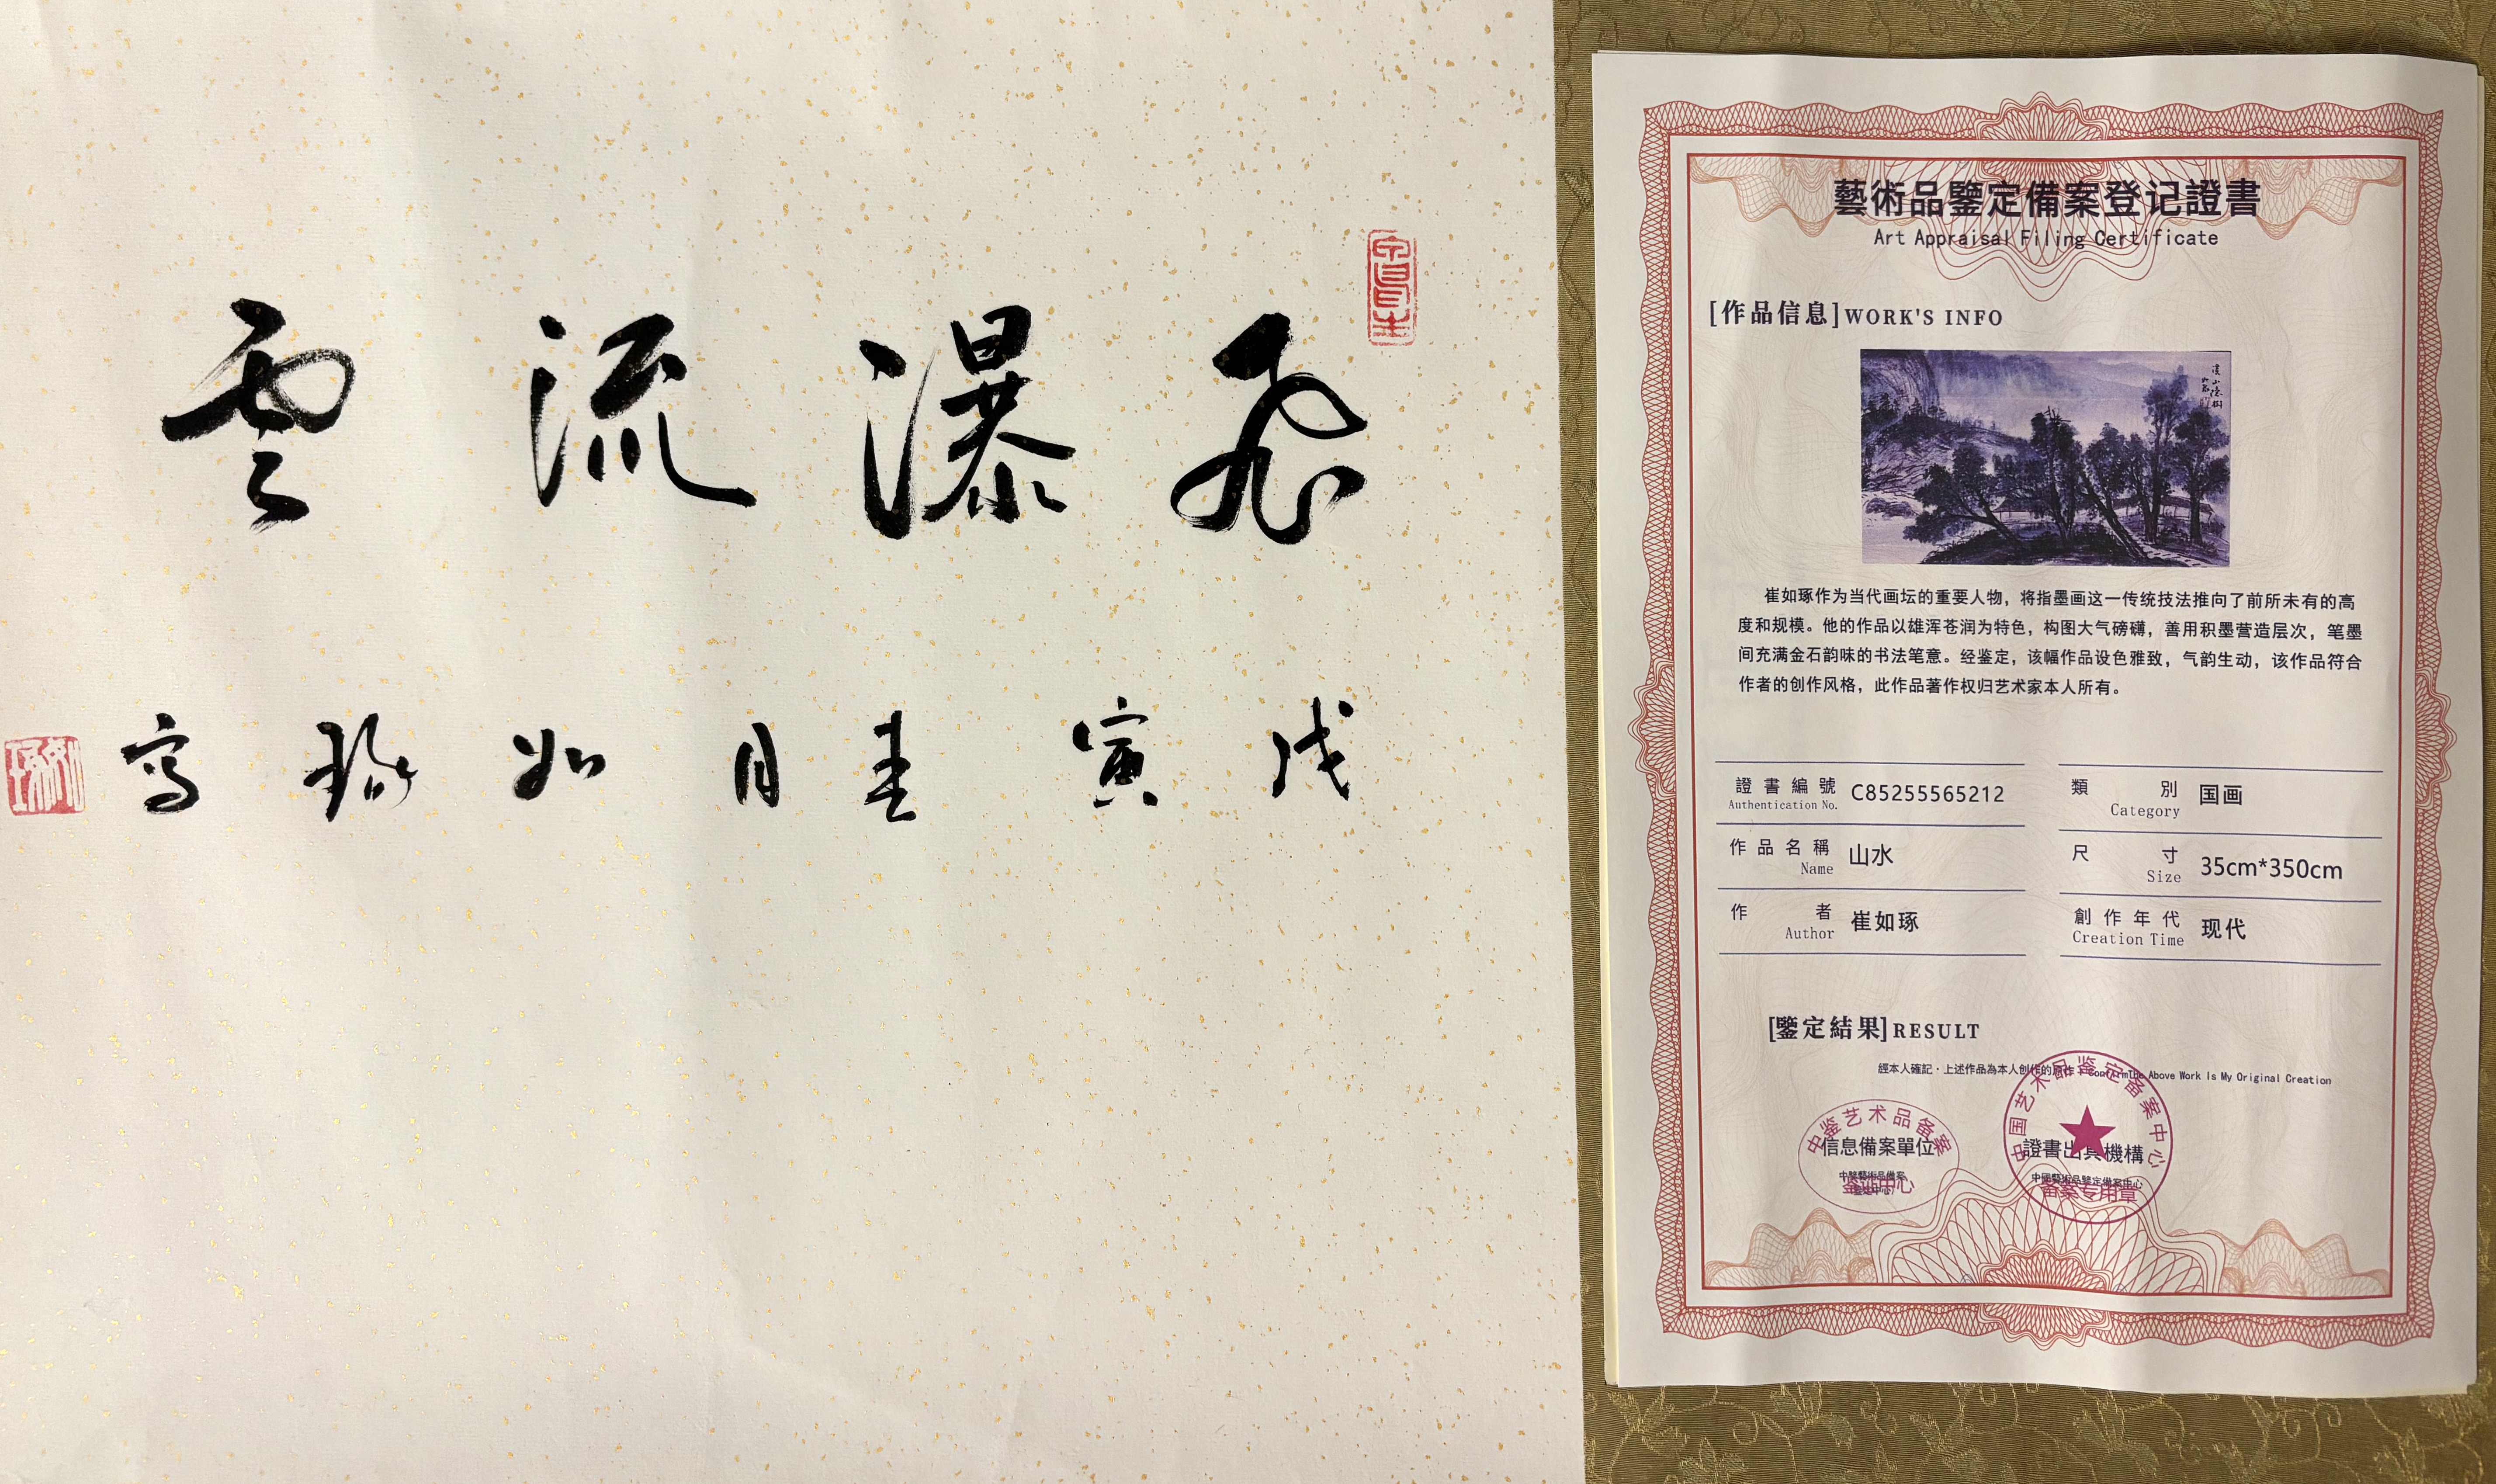 飛瀑流雲
戊寅春月如琢寫
藝術品鑒定備案登记證書
Art Appraisal Filing Certificate
[作品信息]WORK'S INFO
崔如琢作为当代画坛的重要人物，将指墨画这一传统技法推向了前所未有的高
度和规模。他的作品以雄浑苍润为特色，构图大气磅礴，善用积墨营造层次，笔墨
间充满金石韵味的书法笔意。经鉴定，该幅作品设色雅致，气韵生动，该作品符合
作者的创作风格，此作品著作权归艺术家本人所有。
證書編號 C85255565212
Authentication No.
類別 国画
Category
作品名稱 山水
Name
尺寸 35cm*350cm
Size
作者 崔如琢
Author
創作年代 现代
Creation Time
[鑒定結果]RESULT
經本人確記·上述作品為本人創作的 The Above Work Is My Original Creation
中鉴艺术品备案
信息備案單位
中国艺术品鉴定备案中心
證書出具機構
中國藝術品鑒定備案中心
备案专用章